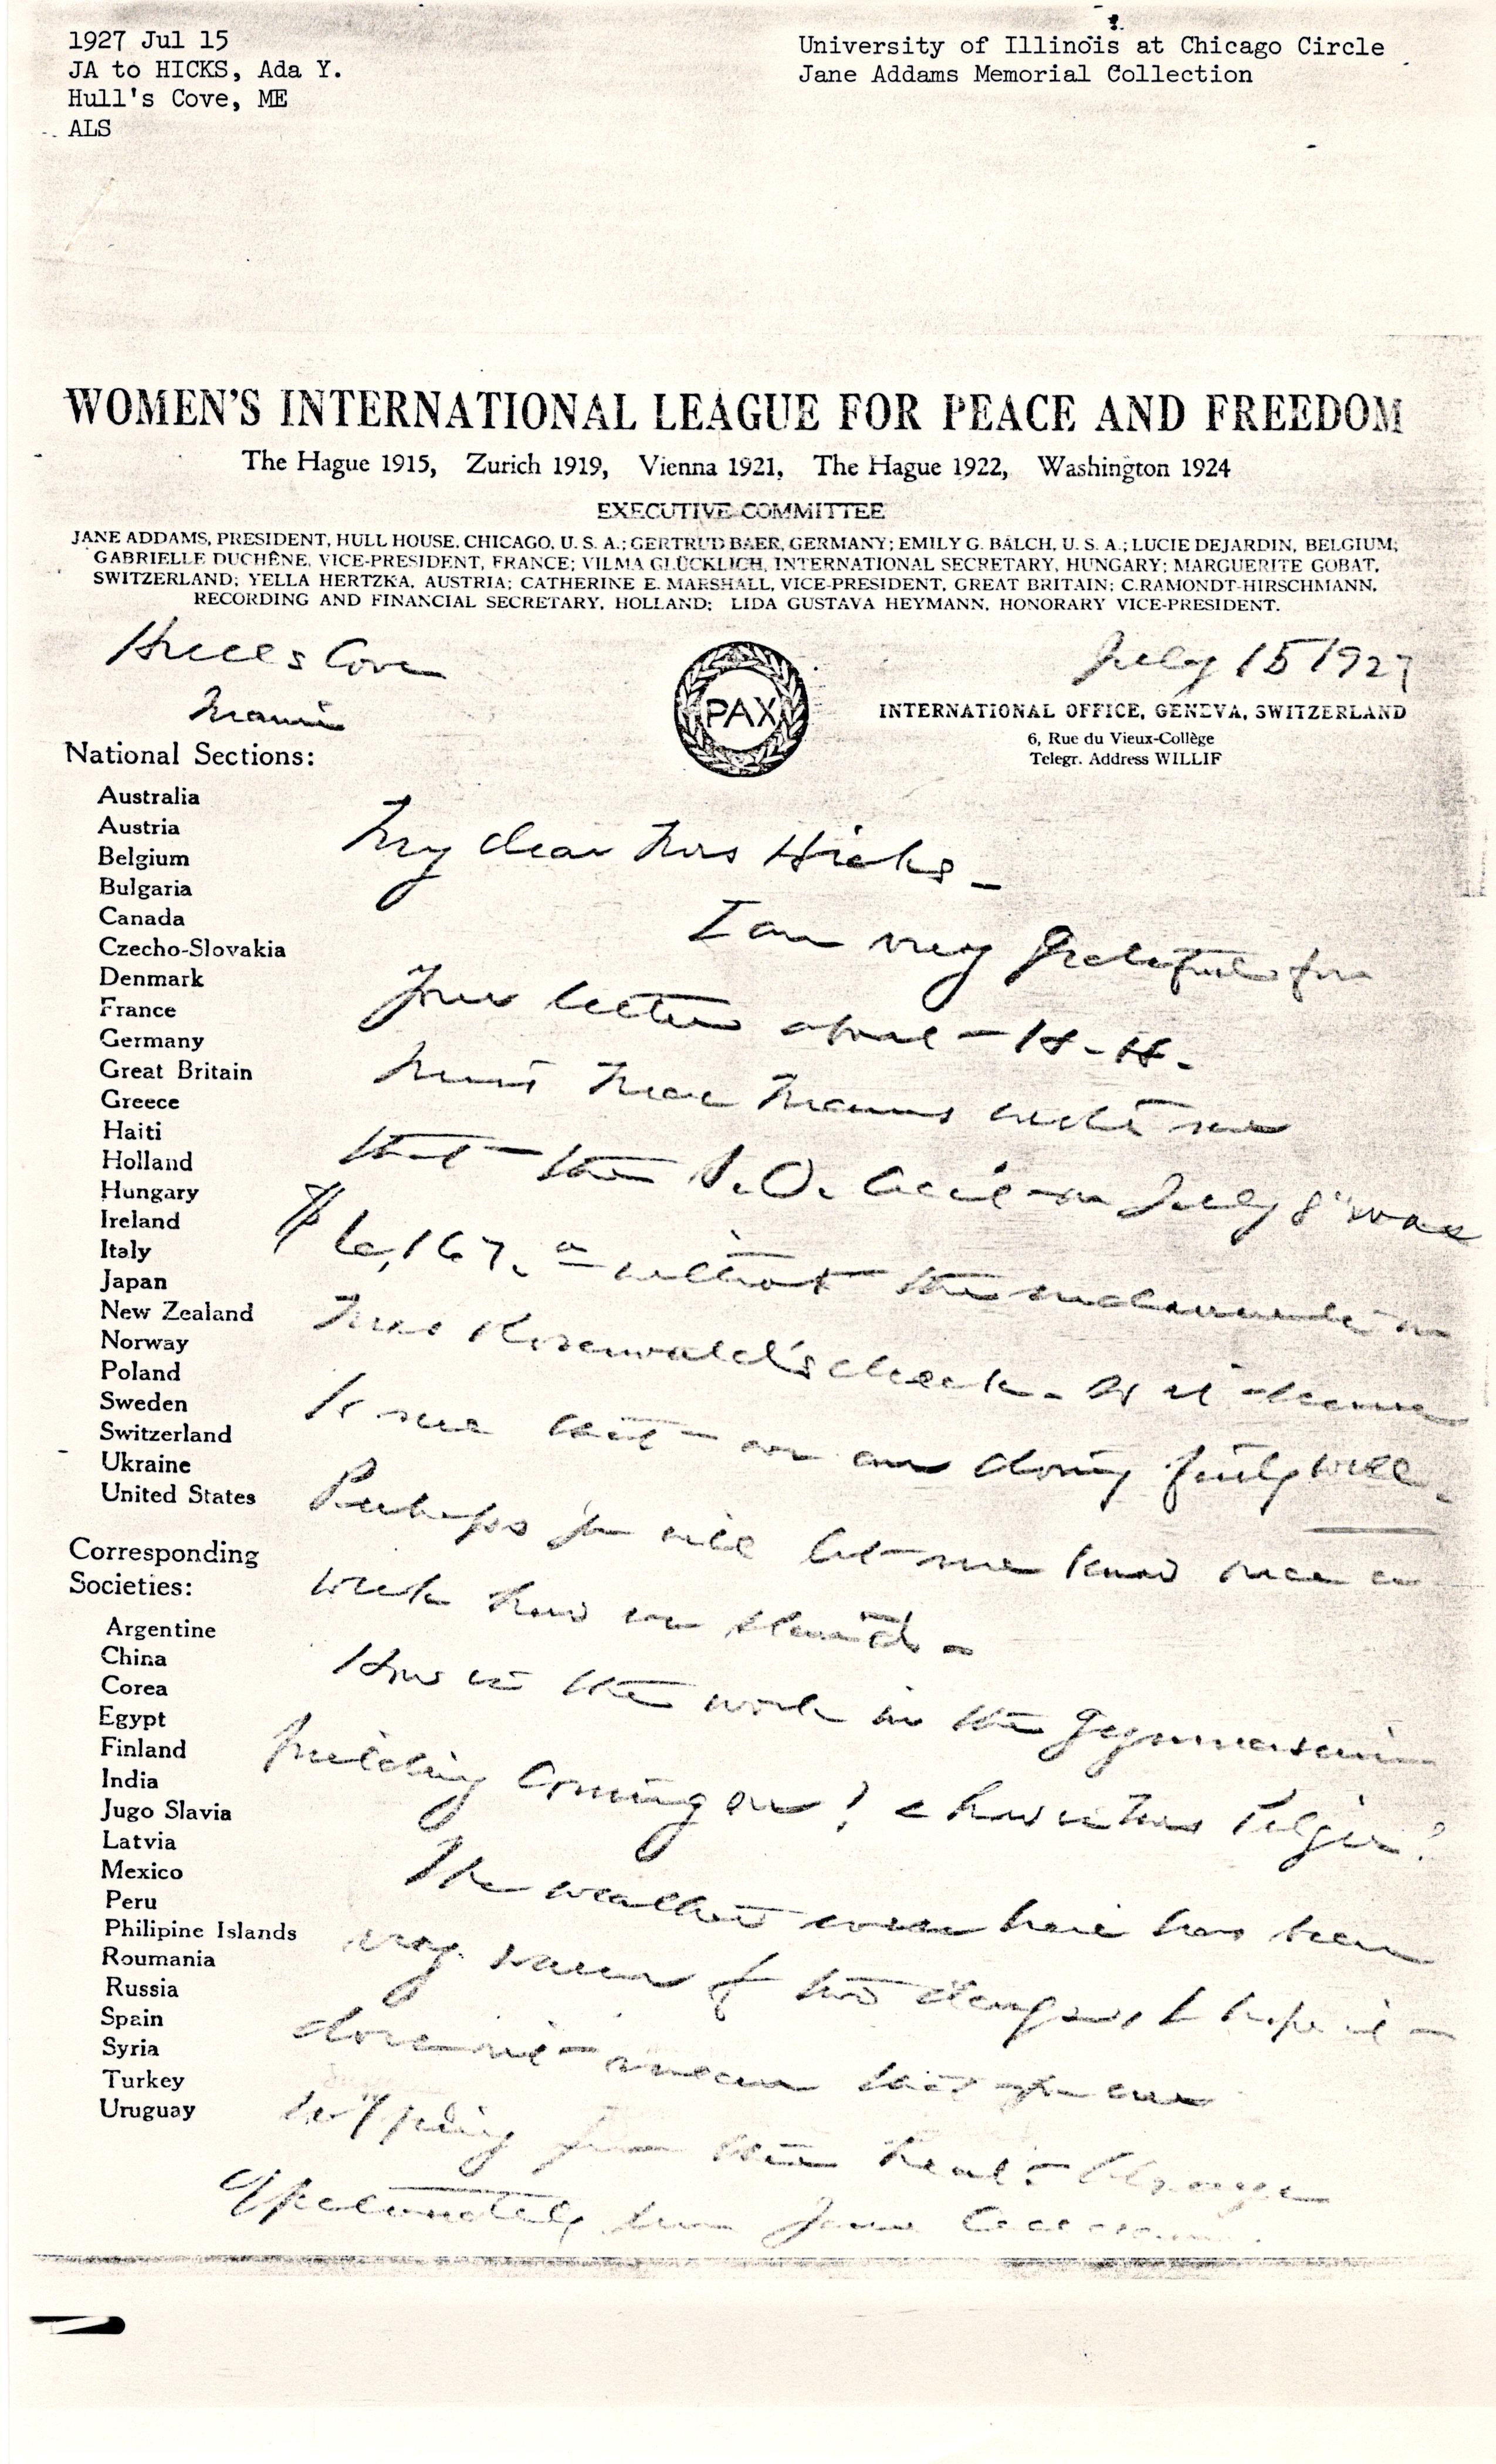 1927 Jul 15
JA to HICKS, Ada Y.
Hull's Cove, ME
ALS
University of Illinois at Chicago Circle
Jane Addams Memorial Collection
WOMEN'S INTERNATIONAL LEAGUE FOR PEACE AND FREEDOM
The Hague 1915, Zurich 1919, Vienna 1921, The Hague 1922, Washington 1924
EXECUTIVE COMMITTEE
JANE ADDAMS, PRESIDENT, HULL HOUSE, CHICAGO, U. S. A.; GERTRUD BAER, GERMANY; EMILY G. BALCH, U. S. A.; LUCIE DEJARDIN, BELGIUM;
GABRIELLE DUCHÊNE, VICE-PRESIDENT, FRANCE; VILMA GLÜCKLICH, INTERNATIONAL SECRETARY, HUNGARY; MARGUERITE GOBAT,
SWITZERLAND; YELLA HERTZKA, AUSTRIA; CATHERINE E. MARSHALL, VICE-PRESIDENT, GREAT BRITAIN; C.RAMONDT-HIRSCHMANN,
RECORDING AND FINANCIAL SECRETARY, HOLLAND; LIDA GUSTAVA HEYMANN, HONORARY VICE-PRESIDENT.
Hulls Cove
Maine
July 15 1927
PAX
INTERNATIONAL OFFICE, GENEVA, SWITZERLAND
6, Rue du Vieux-Collège
Telegr. Address WILLIF
National Sections:
Australia
Austria
Belgium
Bulgaria
Canada
Czecho-Slovakia
Denmark
France
Germany
Great Britain
Greece
Haiti
Holland
Hungary
Ireland
Italy
Japan
New Zealand
Norway
Poland
Sweden
Switzerland
Ukraine
United States
Corresponding
Societies:
Argentine
China
Corea
Egypt
Finland
India
Jugo Slavia
Latvia
Mexico
Peru
Philipine Islands
Roumania
Russia
Spain
Syria
Turkey
Uruguay
My dear Mrs Hicks –
I am very grateful for
your letter about H-H.
wrote me
that the S.O. bill on July 8" was
$6,167. – without the
Mrs Rosenwald's check. As it
to me that we are doing fairly well.
Perhaps you will let me know once a
week how we stand –
How is the work in the Gymnasium
building coming on? & how is Mrs Pelger?
The weather even here has been
very warm for two days, & I hope it
doesn't mean that you are
suffering from the heat. Always
affectionately yours Jane Addams.